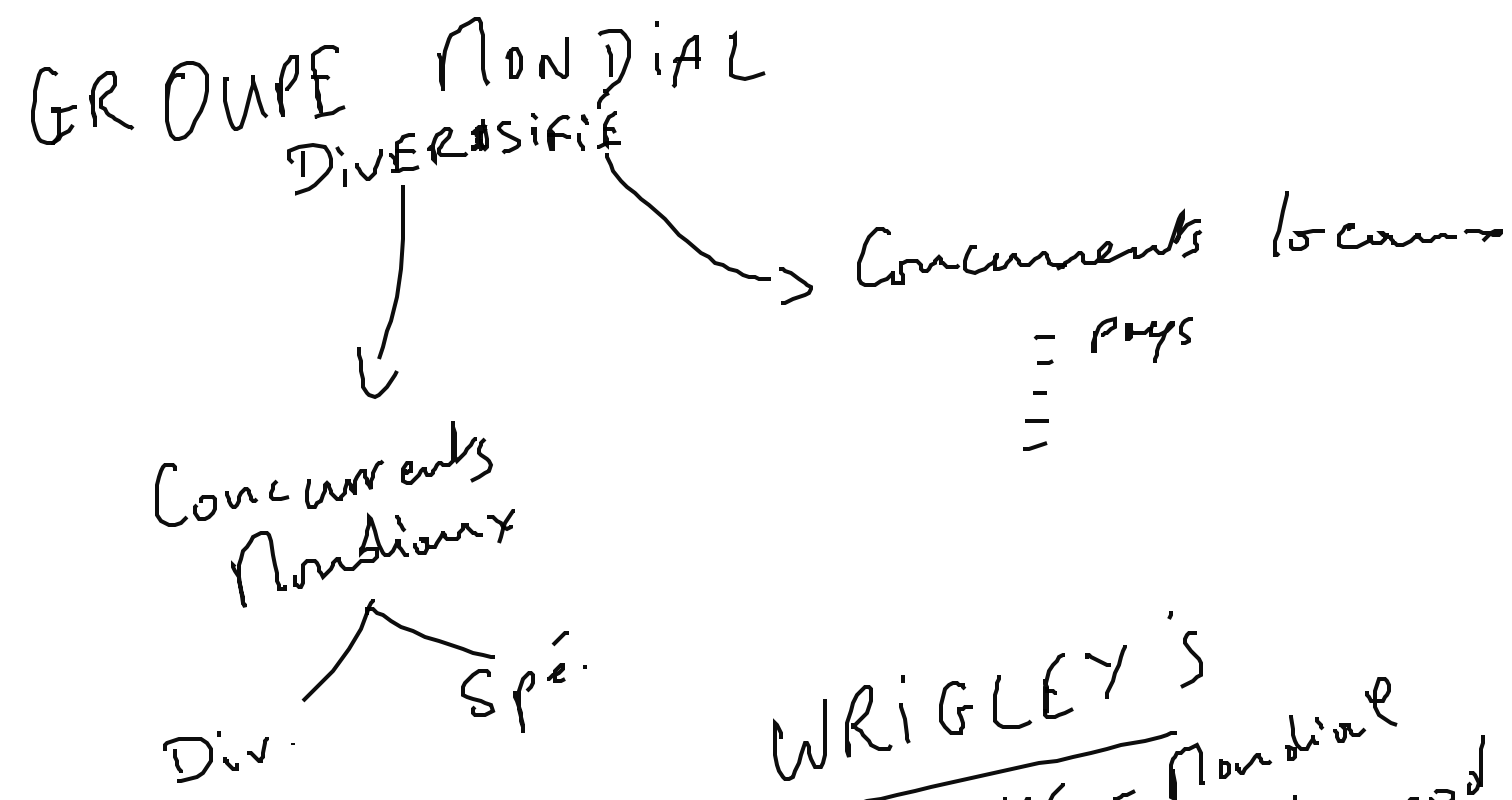 GROUPE MONDIAL
DiVERSiFiÉ
Concurrents locaux
- pays
-
-
-
-
Concurrents
Mondiaux
Div.
Spé.
WRiGLEY's
- Mondial